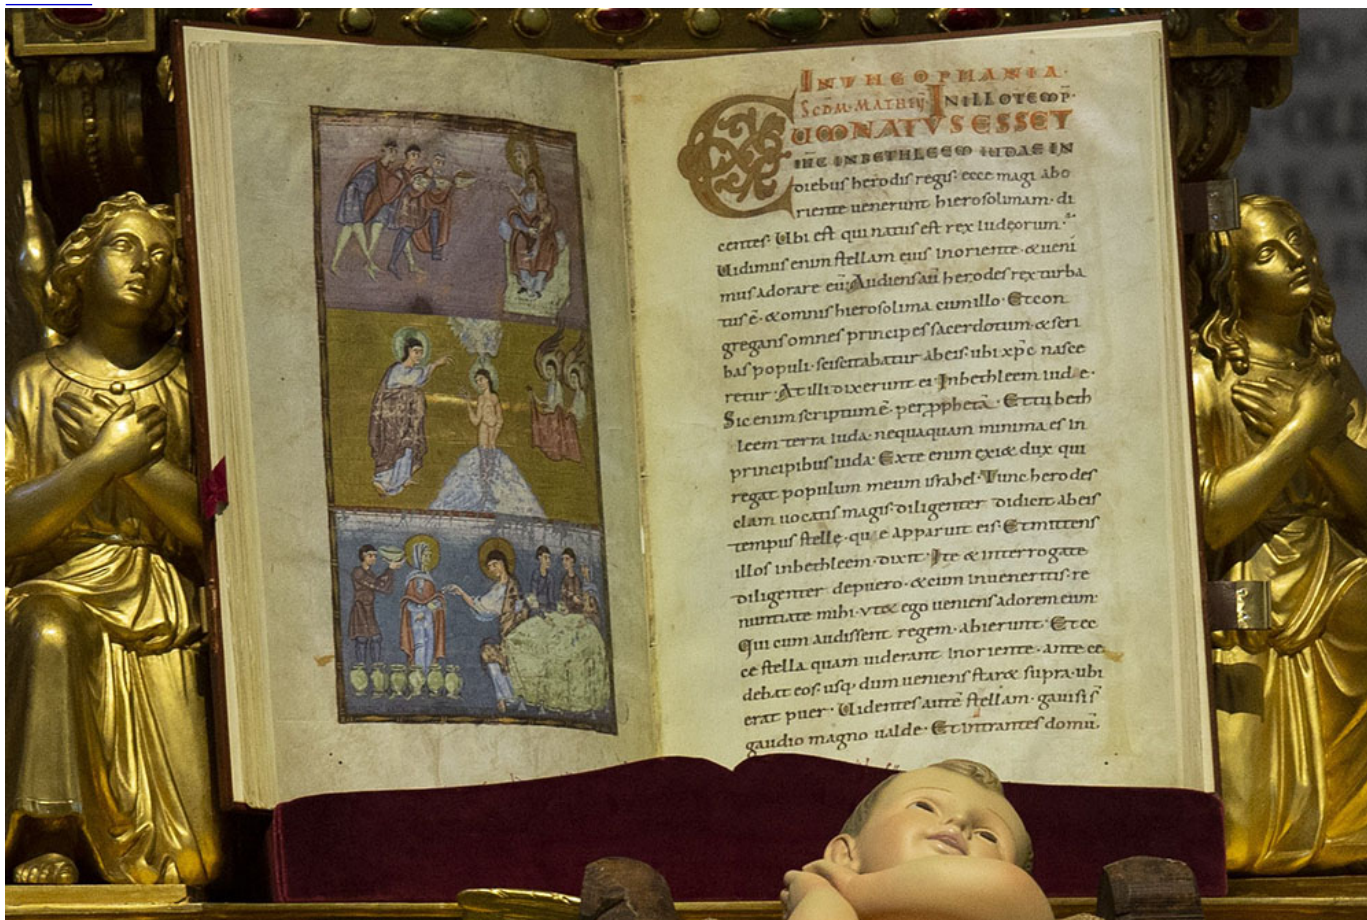 IN THEOPHANIA·
SCDM·MATHEV̄ IN ILLO TEMP̄·
CUM NATUS ESSET
IHC IN BETHLEEM IUDAE IN
diebus herodis regis· ecce magi abo
riente uenerunt hierosolimam· di
centes· Ubi est qui natus est rex iudęorum·
Uidimus enim stellam eius inoriente· &ueni
mus adorare eū; Audiens aū herodes rex turba
tus ē· &omnis hierosolima cum illo· Et con
gregans omnes principes sacerdotum· & scri
bas populi· sciscitabatur abeis· ubi xp̄c nasce
retur· At illi dixerunt ei· Inbethleem iud e·
Sic enim scriptum ē· per ꝓphetā· Et tu beth
leem terra iuda· nequaquam minima es in
principibus iuda· Ex te enim exi& dux qui
regat populum meum israhel· Tunc herodes
clam uocatis magis· diligenter didicit abeis
tempus stellę· qu e apparuit eis· Et mittens
illos inbethleem· dixit· Ite & interrogate
diligenter depuero· &cum inueneritis· re
nuntiate mihi· vt& ego ueniens adorem eum·
Qui cum audissent regem· abierunt· Et ec
ce stella quam uiderant inoriente· ante ce
debat eos· usq· dum ueniens star& supra· ubi
erat puer· Uidentes autē stellam· gauisi s̄
gaudio magno ualde· Et intrantes domū·